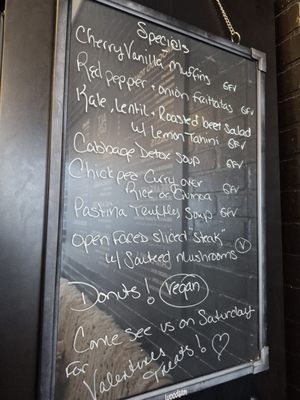 Specials
Cherry Vanilla Muffins GFV
Red Pepper + Onion Frittatas GFV
Kale, Lentil + Roasted beet Salad
w/ Lemon Tahini GFV
Cabbage Detox Soup GFV
Chickpee Curry over
Rice or Quinoa GFV
Pastina Truffles Soup GFV
Open Faced Sliced Steak"
w/ Sauteed mushrooms V
Donuts! Vegan
Come See us on Saturday
For Valentines
Treats!